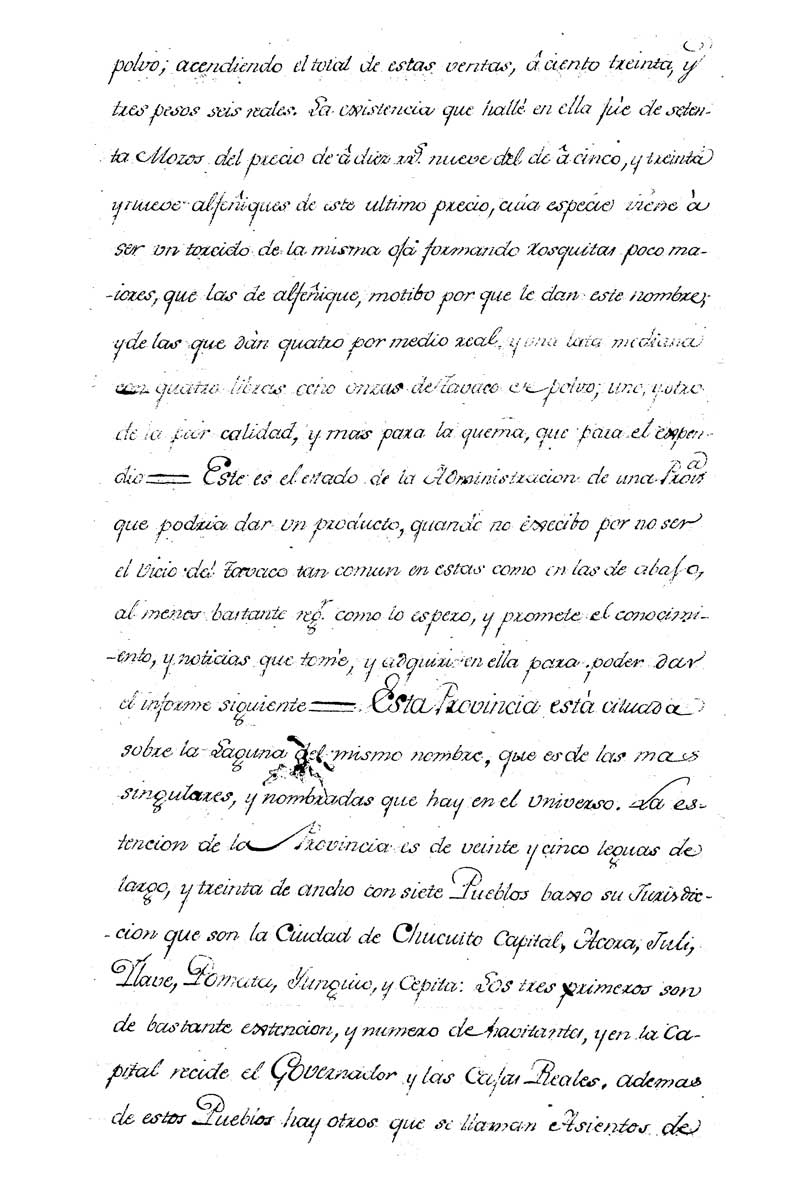 polvo; acendiendo el total de estas ventas, â ciento treinta, y
tres pesos seis reales. La existencia que hallé en ella fúe de seten-
ta Mozos del precio de â diez rr.s nueve del de â cinco, y treinta
y nueve alfeñiques de este ultimo precio, cuia especie viene à
ser un torcido de la misma oja formando rosquitas poco ma-
-iores, que las de alfeñique, motibo por que le dan este nombre;
y de las que dàn quatro por medio real, y una lata mediana
con quatro libras ocho onzas de Tavaco en polvo; uno, y otro
de la peor calidad, y mas para la quema, que para el expen-
dio == Este es el estado de la Administracion de una Prov.a
que podria dar un producto, quando no exsecibo por no ser
el Vicio del Tavaco tan comun en estas como en las de abajo,
al menos bastante reg.r como lo espero, y promete el conocimi-
-ento, y noticias que tomè, y adquiri en ella para poder dar
el informe siguiente == Esta Provincia està cituada
sobre la Laguna del mismo nombre, que es de las mas
singulares, y nombradas que hay en el universo. La es-
tencion de la Provincia es de veinte y cinco leguas de
largo, y treinta de ancho con siete Pueblos baxo su Jurisdic-
-cion que son la Ciudad de Chucuito Capital, Acora, Juli,
Ylave, Pomata, Yunguio, y Cepita: Los tres primeros son
de bastante extencion, y numero de havitantes, y en la Ca-
pital recide el Governador y las Casas Reales, ademas
de estos Pueblos hay otros que se llaman Asientos de